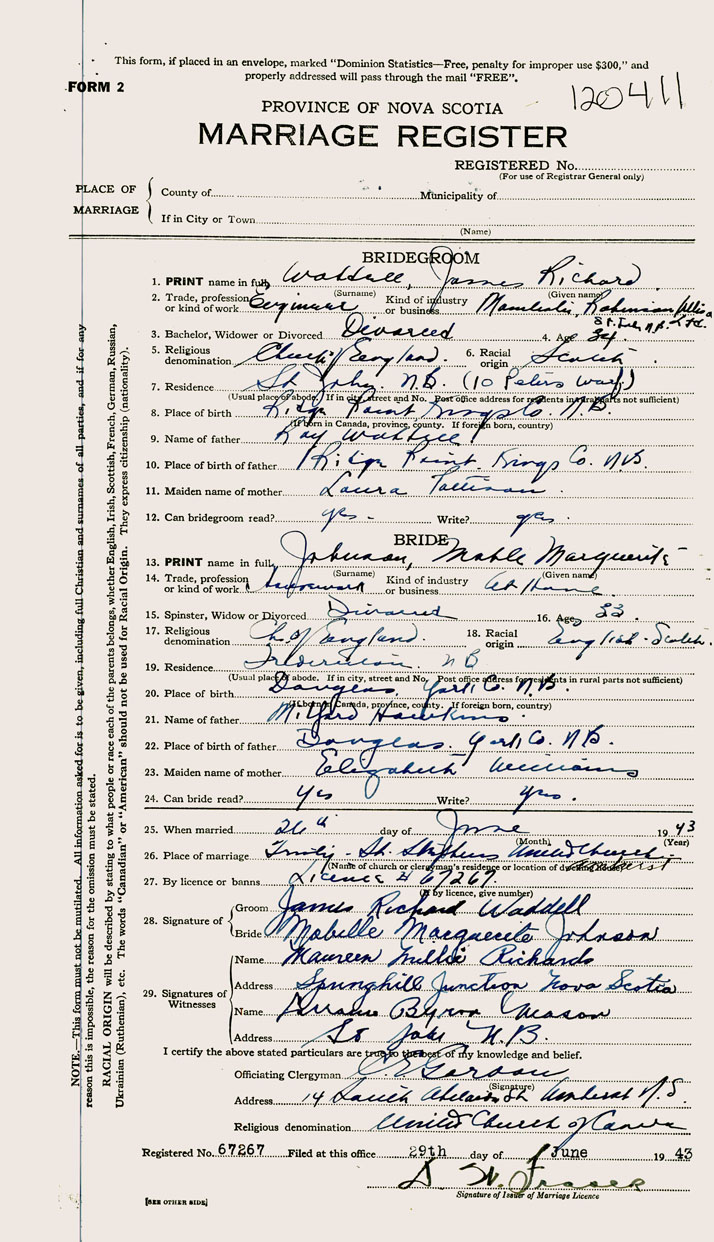 This form, if placed in an envelope, marked "Dominion Statistics—Free, penalty for improper use $300," and
properly addressed will pass through the mail "FREE".
FORM 2
120411
PROVINCE OF NOVA SCOTIA
MARRIAGE REGISTER
REGISTERED No.
(For use of Registrar General only)
PLACE OF MARRIAGE
County of Municipality of
If in City or Town
(Name)
BRIDEGROOM
1. PRINT name in full, Waddell, James Richard
(Surname) (Given name)
2. Trade, profession or kind of work Engineer Kind of industry or business
3. Bachelor, Widower or Divorced Divorced 4. Age 34
5. Religious denomination Church of England. 6. Racial origin Scotch
7. Residence St John. N.B. (10 Peters Way)
(Usual place of abode. If in city, street and No. Post office address for residents in rural parts not sufficient)
8. Place of birth Point Kings Co. N.B.
(If born in Canada, province, county. If foreign born, country)
9. Name of father Ray Waddell
10. Place of birth of father Point. Kings Co. N.B.
11. Maiden name of mother Laura
12. Can bridegroom read? yes - Write? yes.
BRIDE
13. PRINT name in full, Johnson, Mable Marguerite
(Surname) (Given name)
14. Trade, profession or kind of work Kind of industry or business At Home
15. Spinster, Widow or Divorced Divorced 16. Age 33
17. Religious denomination Ch. of England. 18. Racial origin English-Scotch.
19. Residence Fredericton. NB
(Usual place of abode. If in city, street and No. Post office address for residents in rural parts not sufficient)
20. Place of birth Douglas, York Co. N.B.
(If born in Canada, province, county. If foreign born, country)
21. Name of father Milford Hawkins
22. Place of birth of father Douglas. York Co. N.B.
23. Maiden name of mother Elizabeth Williams
24. Can bride read? Yes Write? Yes.
25. When married 26th day of June 1943
(Month) (Year)
26. Place of marriage Trinity - St. Stephens United Church - Amherst
(Name of church or clergyman's residence or location of dwelling house)
27. By licence or banns Licence # 67267
(If by licence, give number)
28. Signature of Groom James Richard Waddell
Bride Mabelle Marguerite Johnson
29. Signatures of Witnesses
Name Maureen Millie Richards
Address Springhill Junction Nova Scotia
Name Byron Mason
Address St John N.B.
I certify the above stated particulars are true to the best of my knowledge and belief.
Officiating Clergyman
(Signature)
Address 14 South Adelaide St Amherst N.S.
Religious denomination United Church of Canada
Registered No. 67267 Filed at this office 29th day of June 1943
D. W. Fraser
Signature of Issuer of Marriage Licence
[SEE OTHER SIDE]
NOTE.—This form must not be mutilated. All information asked for is to be given, including full Christian and surnames of all parties, and if for any
reason this is impossible, the reason for the omission must be stated.
RACIAL ORIGIN will be described by stating to what people or race each of the parents belongs, whether English, Irish, Scottish, French, German, Russian,
Ukrainian (Ruthenian), etc. The words "Canadian" or "American" should not be used for Racial Origin. They express citizenship (nationality).